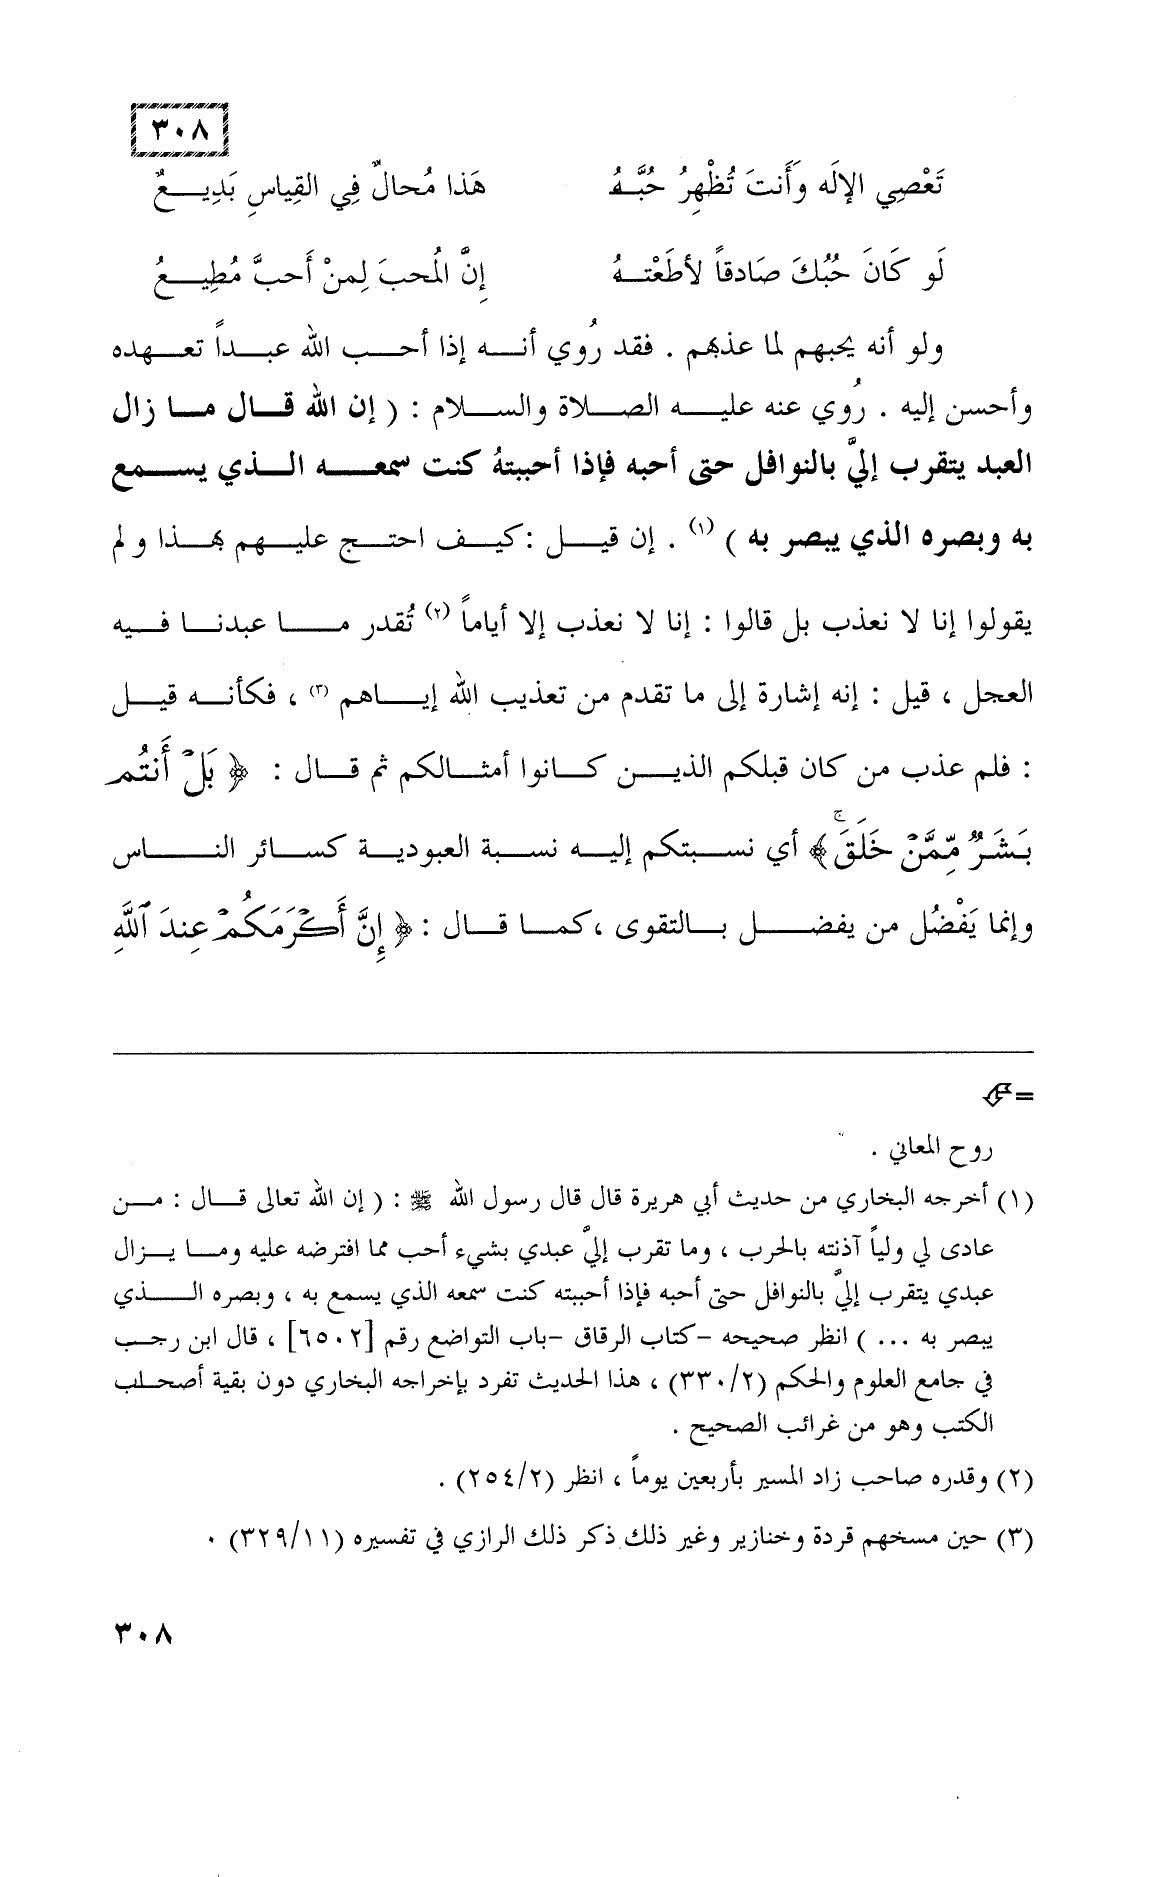 ٣٠٨
تَعْصِي الإلَه وَأَنتَ تُظْهِرُ حُبَّـهُ هَذا مُحالٌ فِي القِياسِ بَدِيـــعٌ
لَو كَانَ حُبُكَ صَادقاً لأطَعْتـــهُ إِنَّ الُمحبَ لِمنْ أَحبَّ مُطِيـــعُ
ولو أنه يحبهم لما عذبهم . فقد رُوي أنـــه إذا أحـــب الله عبـــداً تعـــهده
وأحسن إليه . رُوي عنه عليـــه الصـــلاة والســـلام : ( إن الله قـــال مـــا زال
العبد يتقرب إليَّ بالنوافل حتى أحبه فإذا أحببتهُ كنت سمعـــه الـــذي يســـمع
به وبصره الذي يبصر به ) (١) . إن قيـــل :كيـــف احتـــج عليـــهم بهـــذا و لم
يقولوا إنا لا نعذب بل قالوا : إنا لا نعذب إلا أياماً (٢) تُقدر مـــا عبدنـــا فـــيه
العجل ، قيل : إنه إشارة إلى ما تقدم من تعذيب الله إيـــاهم (٣) ، فكأنـــه قيـــل
: فلم عذب من كان قبلكم الذيـــن كـــانوا أمثـــالكم ثم قـــال : ﴿ بَلْ أَنتُم
بَشَرٌ مِّمَّنْ خَلَقَ ۚ ﴾ أي نســـبتكم إليـــه نســـبة العبوديـــة كســـائر النـــاس
وإنما يَفْضُل من يفضـــل بـــالتقوى ،كمـــا قـــال : ﴿ إِنَّ أَكْرَمَكُمْ عِندَ ٱللَّهِ
=
روح المعاني .
(١) أخرجه البخاري من حديث أبي هريرة قال قال رسول الله ﷺ : ( إن الله تعالى قـــال : مـــن
عادى لي ولياً آذنته بالحرب ، وما تقرب إليَّ عبدي بشيء أحب مما افترضه عليه ومـــا يـــزال
عبدي يتقرب إليَّ بالنوافل حتى أحبه فإذا أحببته كنت سمعه الذي يسمع به ، وبصره الـــذي
يبصر به ... ) انظر صحيحه –كتاب الرقاق –باب التواضع رقم [٦٥٠٢] ، قال ابن رجـــب
في جامع العلوم والحكم (٣٣٠/٢) ، هذا الحديث تفرد بإخراجه البخاري دون بقية أصحـــاب
الكتب وهو من غرائب الصحيح .
(٢) وقدره صاحب زاد المسير بأربعين يوماً ، انظر (٢٥٤/٢) .
(٣) حين مسخهم قردة وخنازير وغير ذلك ذكر ذلك الرازي في تفسيره (٣٢٩/١١) .
٣٠٨